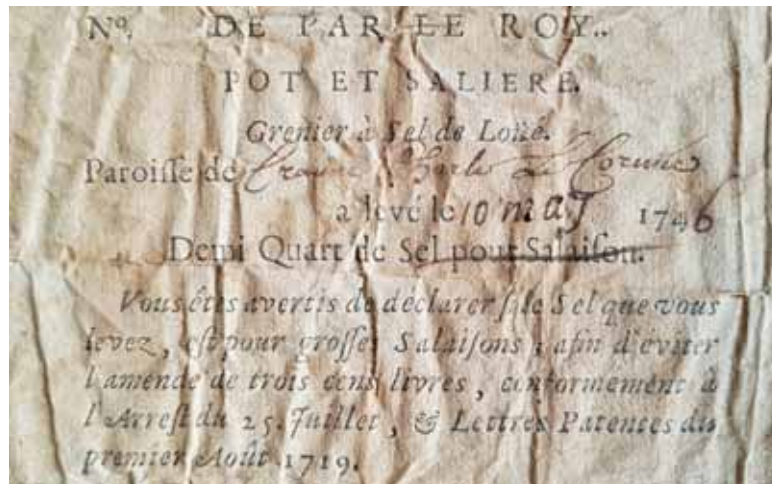 Nº. DE PAR LE ROY..
POT ET SALIERE.
Grenier à Sel de Loüé.
Paroiſſe de
a levé le 10 maj 1746
Demi Quart de Sel pour Salaiſon.
Vous êtes avertis de déclarer ſi le Sel que vous
levez, eſt pour groſſes Salaiſons, afin d'éviter
l'amende de trois cens livres, conformément à
l'Arreſt du 25. Juillet, & Lettres Patentes du
premier Août 1719.